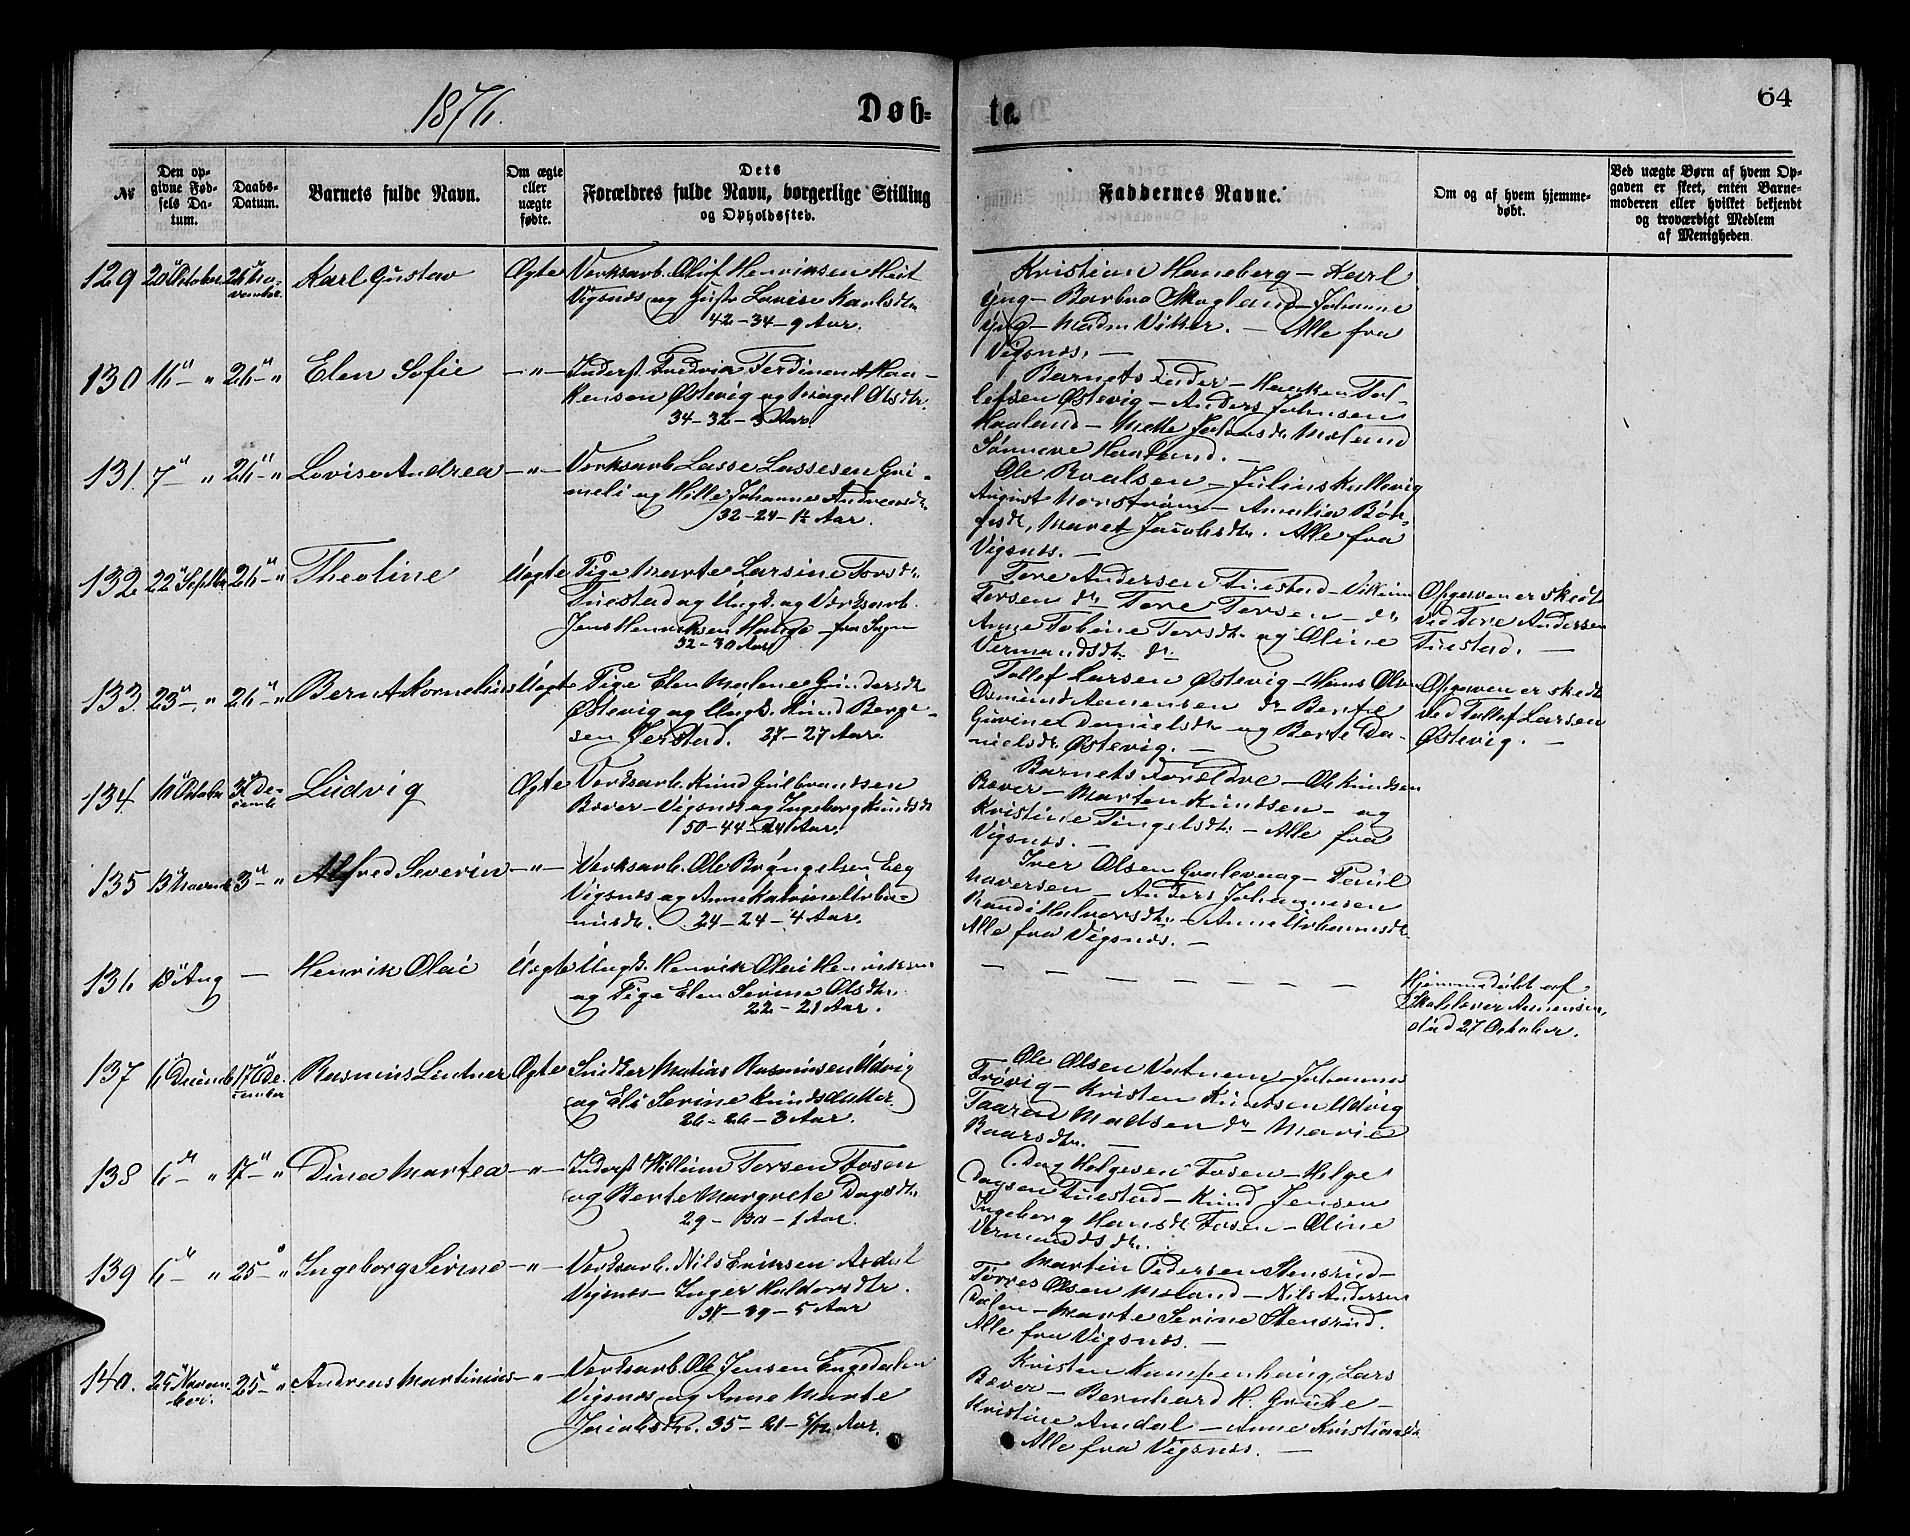 1876.
Døb-
te.
64
№
Den op-
givne Fød-
sels Da-
tum.
Daabs-
Datum.
Barnets fulde Navn.
Om ægte
eller
uægte
fødte.
Dets
Forældres fulde Navn, borgerlige Stilling
og Opholdssted.
Faddernes Navne.
Om og af hvem hjemme-
døbt.
Ved uægte Børn af hvem Op-
gaven er skeet, enten Barne-
moderen eller hvilket bekjendt
og troværdigt Medlem
af Menigheden
129 20 October 26 No-
vember. Karl Gustav Ægte Verksarb. Oluf Henriksen Heit
Vigsnes og Lovise Karlsdtr
42-34-9 Aar.
Kristian Haneberg - Karl
Yng - Barbro Skogland - Johanne
Yng - Madm Vikker. - Alle fra
Vigsnes. -
130 16 - " 26 - " Elen Sofie - " - Inderst Fredrik Ferdinand Haa-
kensen Østevig og Olsdtr.
34-32-3 Aar
Barnets Fader - Haaken Tol-
lefsen Østevig - Anders Johnsen
Haaland - Mette Moland
Sønneve Haaland. -
131. 7 - " 26 - " Lovise Andrea - " - Verksarb Lasse Lassesen Gri-
meli og Hille Johanne Andreasdtr
32-24-1½ Aar.
Ole Roalsen - Julius Kallevig
August Norstrøm - Amalia
Maret Jacobsdtr. Alle fra
Vigsnes. -
132 22 Septbr 26 - " Theoline Uægte Pige Marte Larsine Torsdtr.
Tuestad og Ungk. og Verksarb.
Jens Henriksen Hauge - fra Sogn
32-30 Aar
Tore Andersen Tuestad - Vilhelm
Torsen do Tore Torsen - do
Anne Tobine Torsdtr og Oline
Vermundsdtr do
Opgaven er skedt
ved Tore Andersen
Tuestad. -
133 23 - " 26 - " Bernt Kornelius Uægte Pige Elen Malene Gundersdtr
Østevig og Ungk. Knud Berge-
sen Ferstad. 27-27 Aar.
Tollef Larsen Østevig - Hans Olsen
Osmund Aamensen do Bente
Gurine Danielsdtr og Berte Da-
nielsdtr Østevig. -
Opgaven er skedt
ved Tollef Larsen
Østevig. -
134 10 October 3 De-
cemb Ludvig Ægte Verksarb. Knud Gulbrandsen
Bæver - Vigsnes og Ingeborg Knudsdtr
50-44-24 Aar.
Barnets Forældre - Ole Knudsen
Bæver - Marten Knudsen - og
Kristine Tingelsdtr. - Alle fra
Vigsnes. -
135 13 Novemb 3 - " Alfred Severin - " - Verksarb. Ole Brøngelsen Eeg
Vigsnes og Anne Katrine Urba-
nusdtr. 24-24-4 Aar.
Iver Olsen Gralevaag - Poul
Naversen - Anders Johannesen
Randi Halvorsdtr - Anne Urbanusdtr
Alle fra Vigsnes. -
136 18 Aug - Henrik Olai Uægte Ungk. Henrik Olai Henriksen
og Pige Elen Serine Olsdtr.
22-21 Aar.
- - - - - - -
Hjemmedøbt af
Skolelærer Aamensen,
død 27 October.
137 6 Decemb 17 De-
cember Rasmus Lintner Ægte Snedker Matias Rasmussen Udvig
og Eli Serine Knudsdatter
26-26-3 Aar.
Ole Olsen Vatnem - Johanne
Frøvig - Kristen Knutsen Udvig
Taaren Madsen do Marie
Baarsdtr. -
138 6 - " 17 - " Dina Martea - " - Inderst Villum Torsen Fosen
og Berte Margrete Dagsdtr.
29-30-1 Aar.
Dag Helgesen Fosen - Helge
Dagsen Tuestad - Knud Jensen
Ingeborg Hansdtr Fosen - Oline
Vermundsdtr.
139 6 - " 25 - " Ingeborg Serine - " - Verksarb. Nils Eriksen Asdal
Vigsnes - Inger Haldorsdtr.
31-29-5 Aar
Martin Pedersen Stensrud -
Tørres Olsen Moland - Nils Andersen
Dalen - Marte Serine Stensrud.
Alle fra Vigsnes. -
140. 25 Novem-
ber. 25 - " Andreas Martinius - " - Verksarb. Ole Jensen Engedalen
Vigsnes og Anne Marte
Jacobsdtr. 35-21-5/12 Aar.
Kristen Kampenhaug, Lars
Bæver - Bernhard H. Grube -
Kristine Amdal - Anne Kristiansdtr
Alle fra Vigsnes. -